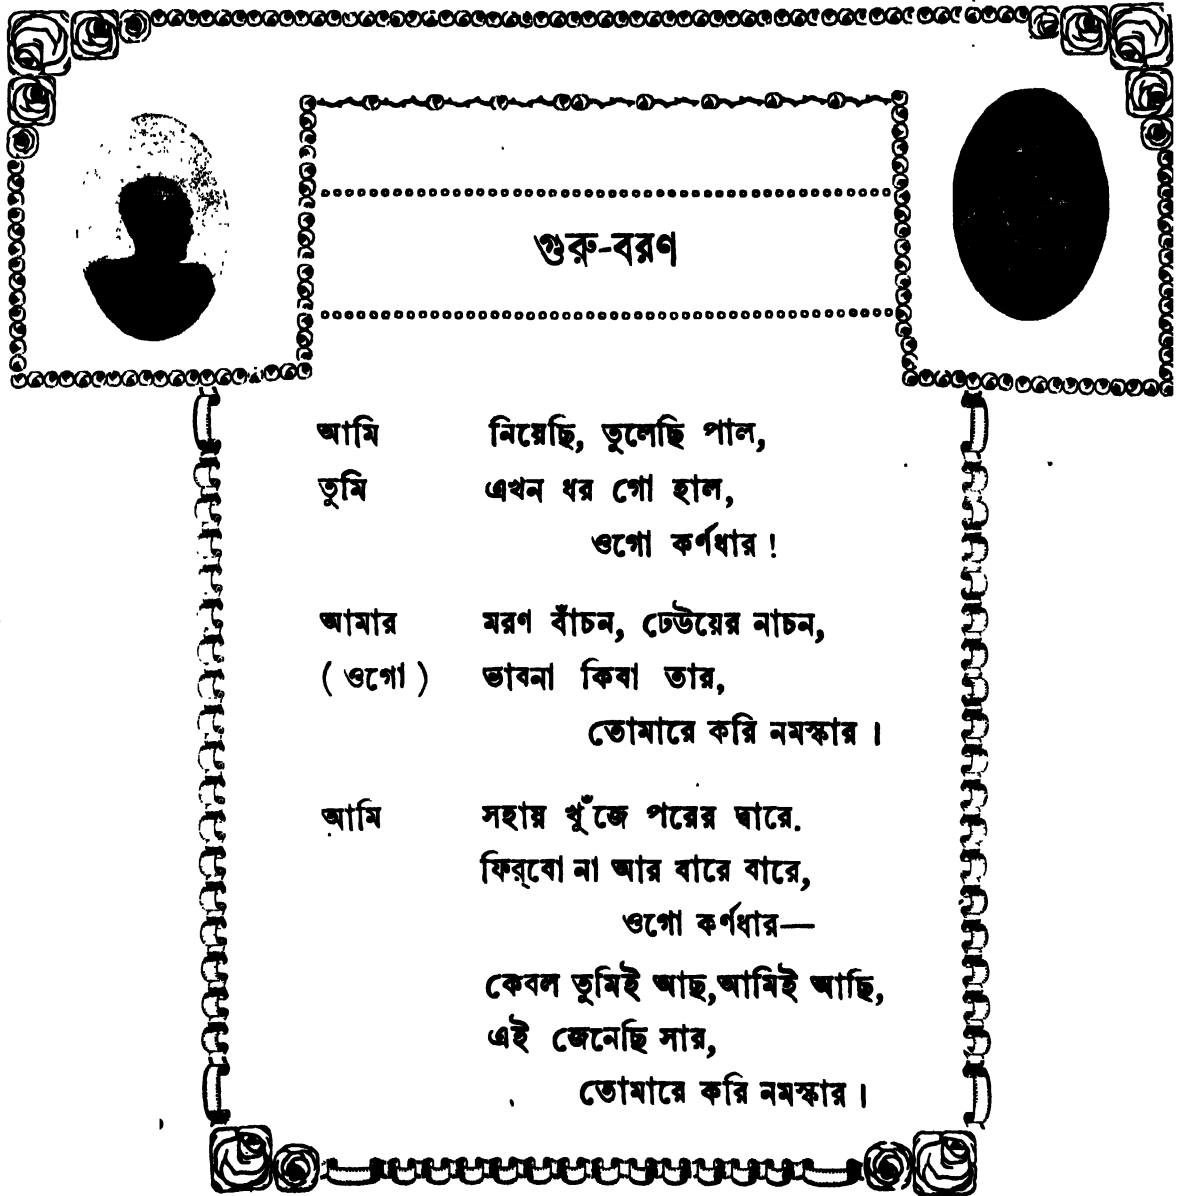 গুরু-বরণ
আমি নিয়েছি, তুলেছি পাল,
তুমি এখন ধর গো হাল,
ওগো কর্ণধার !
আমার মরণ বাঁচন, ঢেউয়ের নাচন,
( ওগো ) ভাবনা কিবা তার,
তোমারে করি নমস্কার ।
আমি সহায় খুঁজে পরের দ্বারে.
ফির্‌বো না আর বারে বারে,
ওগো কর্ণধার—
কেবল তুমিই আছ,আমিই আছি,
এই জেনেছি সার,
তোমারে করি নমস্কার ।